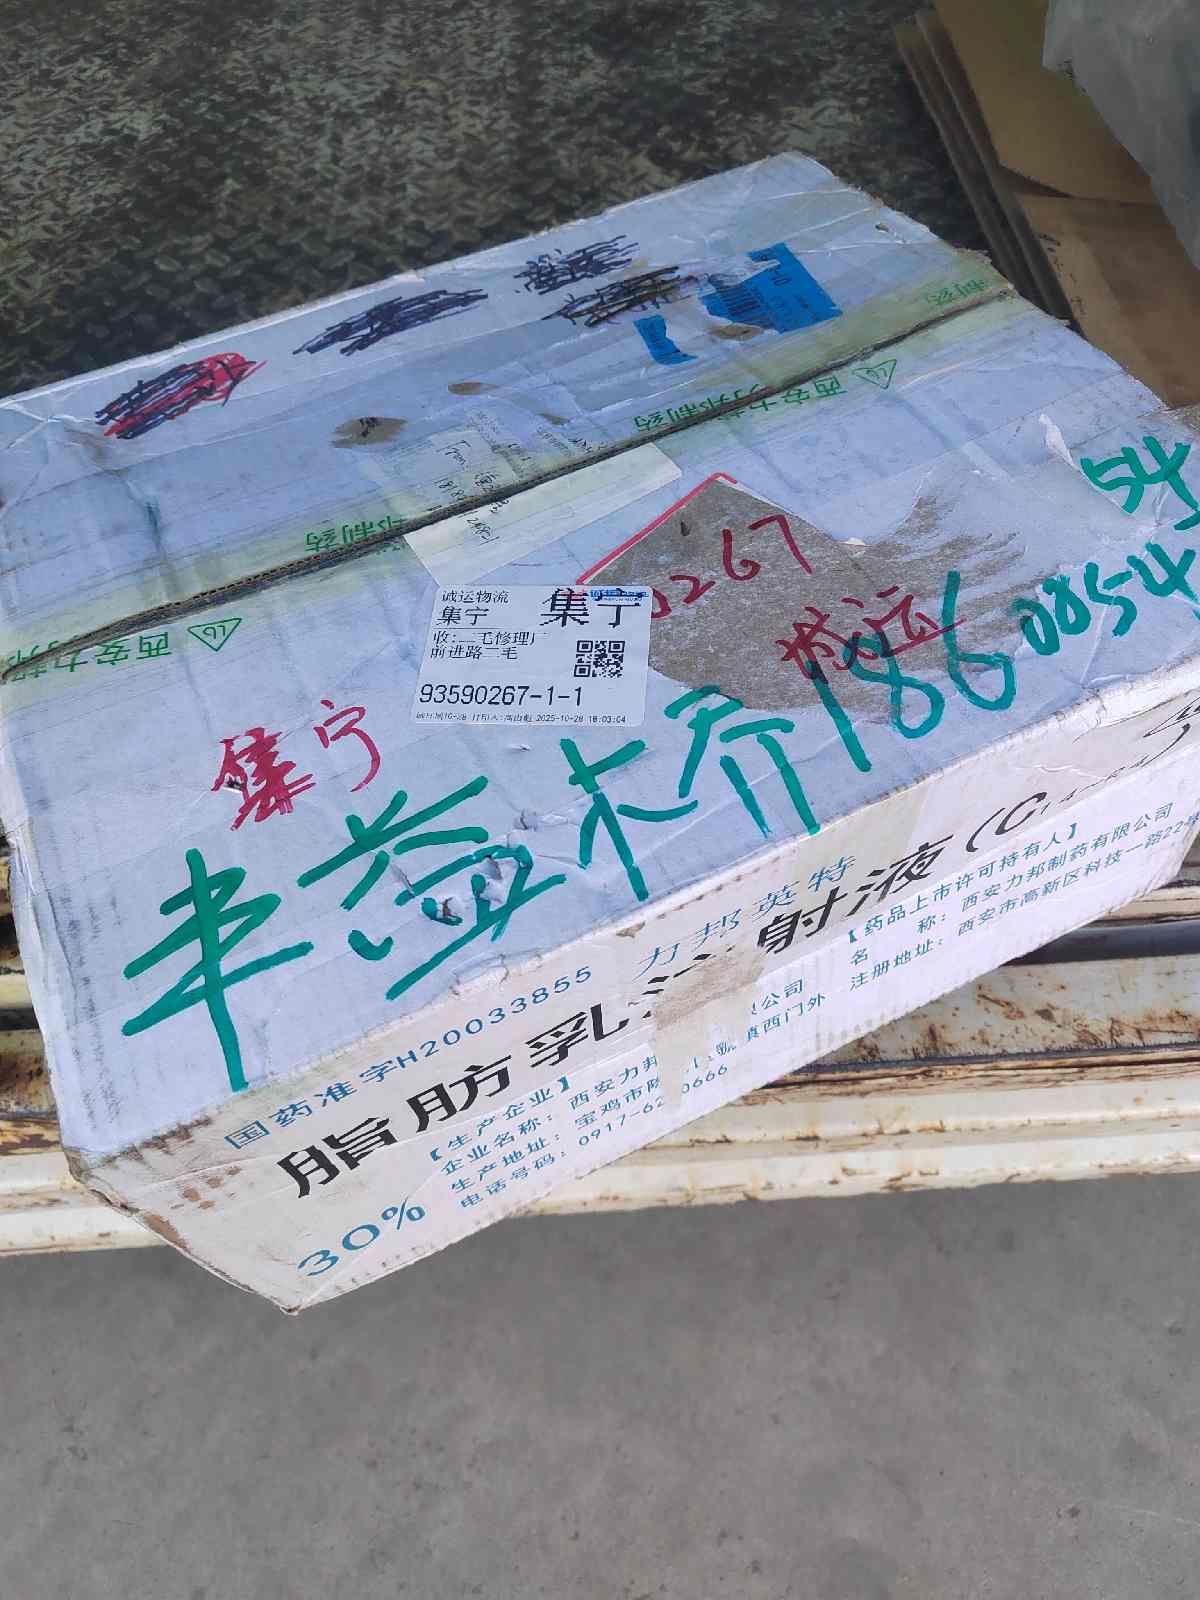 制药
西安力邦制药
邦制药
西安力邦
54
0267
诚运
诚运物流
集宁 集宁
收:二毛修理厂
前进路二毛
93590267-1-1
2025-10-28 18:03:04
集宁
丰益木乔18608544
国药准字H20033855 力邦英特
脂肪乳注射液(C
30%
【生产企业】
企业名称: 西安力邦
生产地址: 宝鸡市
电话号码: 0917-62 0666
公司
镇西门外
【药品上市许可持有人】
名 称: 西安力邦制药有限公司
注册地址: 西安市高新区科技一路22号